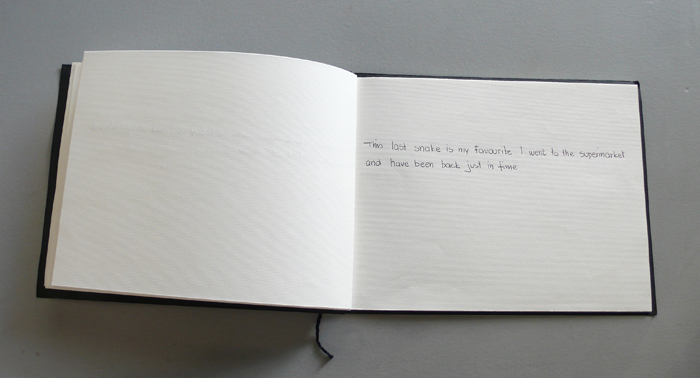 This last snake is my favourite I went to the supermarket
and have been back just in time